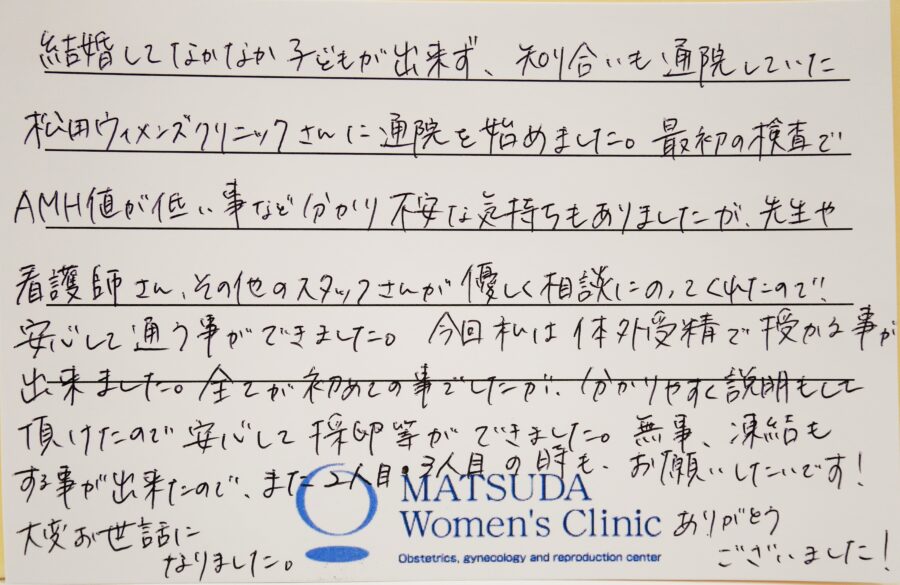 結婚してなかなか子どもが出来ず、知り合いも通院していた
松田ウィメンズクリニックさんに通院を始めました。最初の検査で
AMH値が低い事など分かり不安な気持ちもありましたが、先生や
看護師さん、その他のスタッフさんが優しく相談にのってくれたので
安心して通う事ができました。今回私は体外受精で授かる事が
出来ました。全てが初めての事でしたが、分かりやすく説明もして
頂けたので安心して採卵等ができました。無事、凍結も
する事が出来たので、また2人目・3人目の時も、お願いしたいです!
大変お世話に
なりました。
MATSUDA
Women's Clinic
Obstetrics, gynecology and reproduction center
ありがとう
ございました!